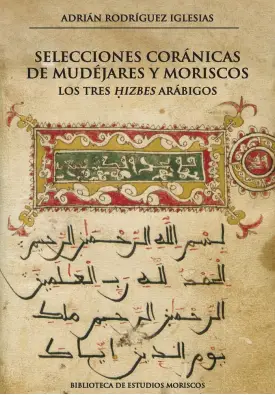 ADRIÁN RODRÍGUEZ IGLESIAS
SELECCIONES CORÁNICAS
DE MUDÉJARES Y MORISCOS
LOS TRES ḤIZBES ARÁBIGOS
بسم الله الرحمن الرحيم
الحمد لله رب العالمين
الرحمن الرحيم ملك
يوم الدين اياك
BIBLIOTECA DE ESTUDIOS MORISCOS